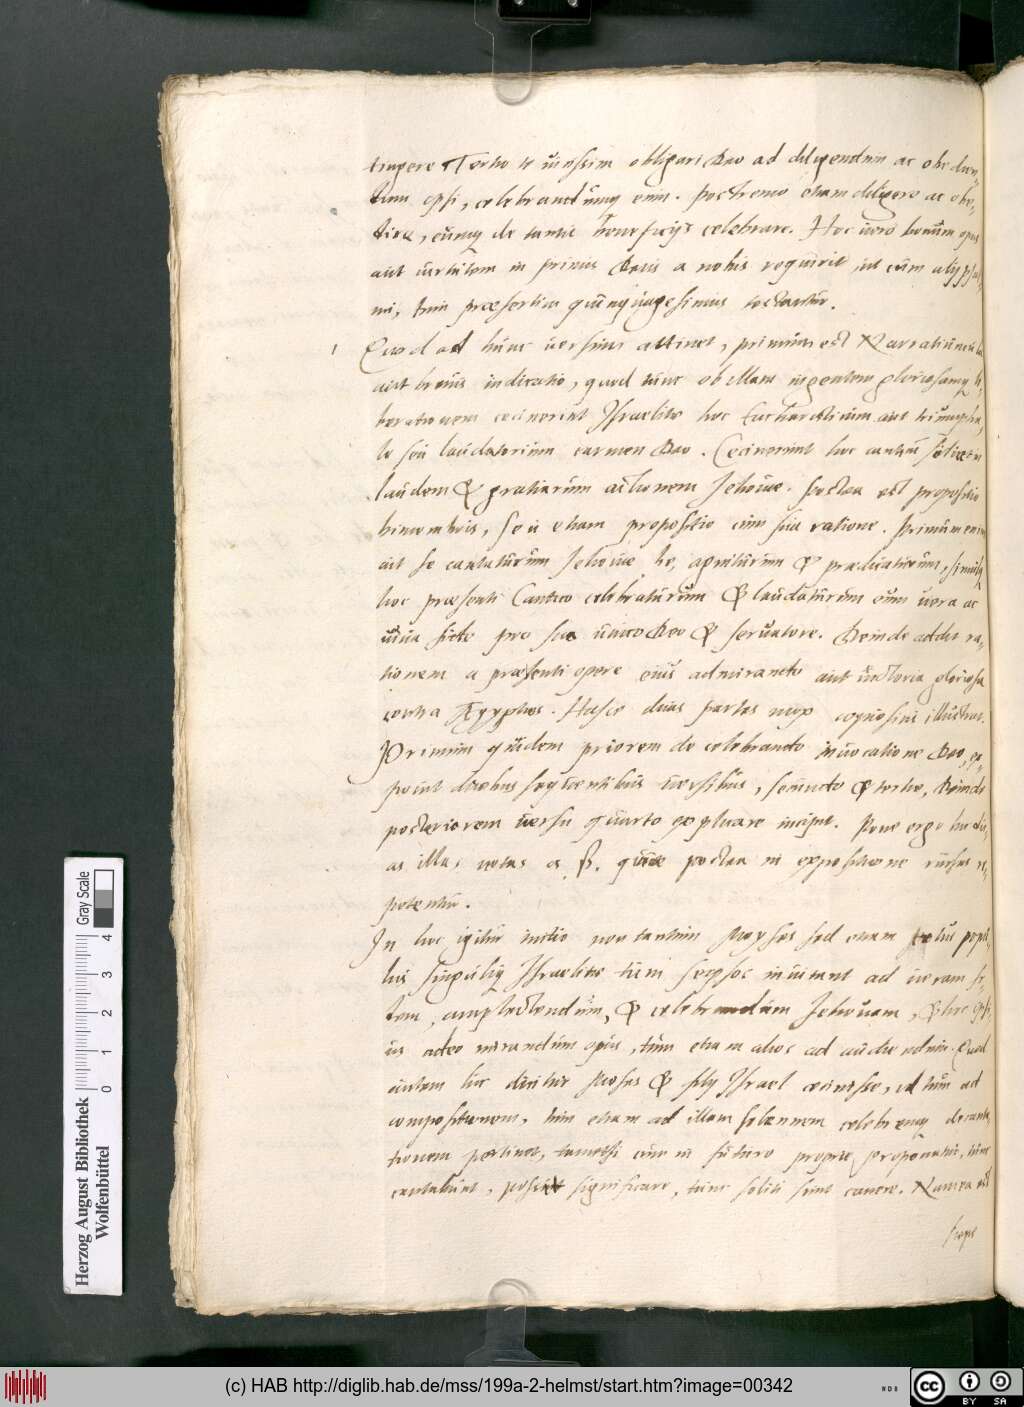 tingere Tertio te vicissim obligari Deo ad diligendum ac obedien-
dum ipsi, celebrandumq eum. Postremo etiam diligere ac obe-
dire, eumq de tantis beneficijs celebrare. Hoc vero bonum opus
aut virtutem in primis Deus a nobis requirit, ut cum alij psal-
mi, tum præsertim quinquagesimus testantur.
1 Quod ad hunc versum attinet, primum est Narratiuncula
aut brevis indicatio, quod tunc ob illam ingentem gloriosamq li-
berationem cecinerint Israelitæ hoc Eucharisticum aut triumpha-
le seu laudatorium carmen Deo. Cecinerunt hoc cantu scilicet
laudem & gratiarum actionem Jehovæ. Postea est propositio
bimembris, seu etiam propositio cum sua ratione. Primum enim
ait se cantaturum Jehovæ he, agniturum & prædicaturum, simulq
hoc præsenti Cantico celebraturum & laudaturum eum vera ac
viva fide pro suo unico Deo & servatore. Deinde addit ra-
tionem a præsenti opere eius admirando aut victoria gloriosa
contra Ægyptios. Hasce duas partes mox copiosius illustrat.
Primum quidem priorem de celebrando invocatione Deo, ex-
ponit duobus sequentibus versibus, secundo & tertio, Deinde
posteriorem versu quarto explicare incipit. Pone ergo hic du-
as illas notas a. b. quæ postea in expositione rursus re-
petentur.
In hoc igitur initio non tantum Moyses sed etiam totus popu-
lus singuliq Israelitæ tum seipsos invitant ad veram fi-
dem, amplectendum, & celebrandum Jehovam, & hoc ips-
ius adeo mirandum opus, tum etiam alios ad audiendum. Quod
autem hic dicitur Moses & filij Israel cecinisse, id tum ad
compositionem, tum etiam ad illam solennem celebremq decanta-
tionem pertinet, tametsi cum in futuro proprie proponatur, tunc
cantabunt, possit significare, tunc soliti sunt canere. Nam ea est
sæpe
Herzog August Bibliothek
Wolfenbüttel
0 1 2 3 4
Gray Scale
(c) HAB http://diglib.hab.de/mss/199a-2-helmst/start.htm?image=00342
cc BY SA